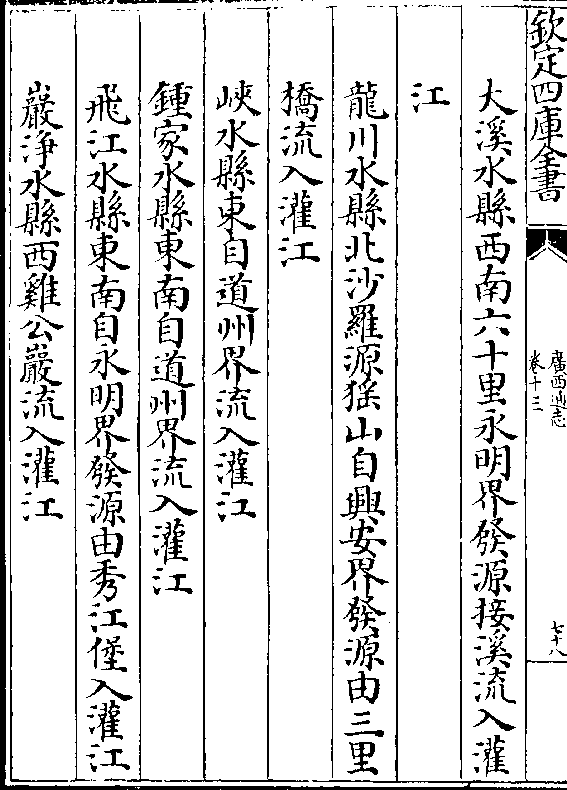 欽定四庫全書
廣西通志
卷十三
七十八
大溪水縣西南六十里永明界發源接溪流入灌
江
龍川水縣北沙羅源猺山自興安界發源由三里
橋流入灌江
峽水縣東自道州界流入灌江
鍾家水縣東南自道州界流入灌江
飛江水縣東南自永明界發源由秀江堡入灌江
巖淨水縣西雞公巖流入灌江